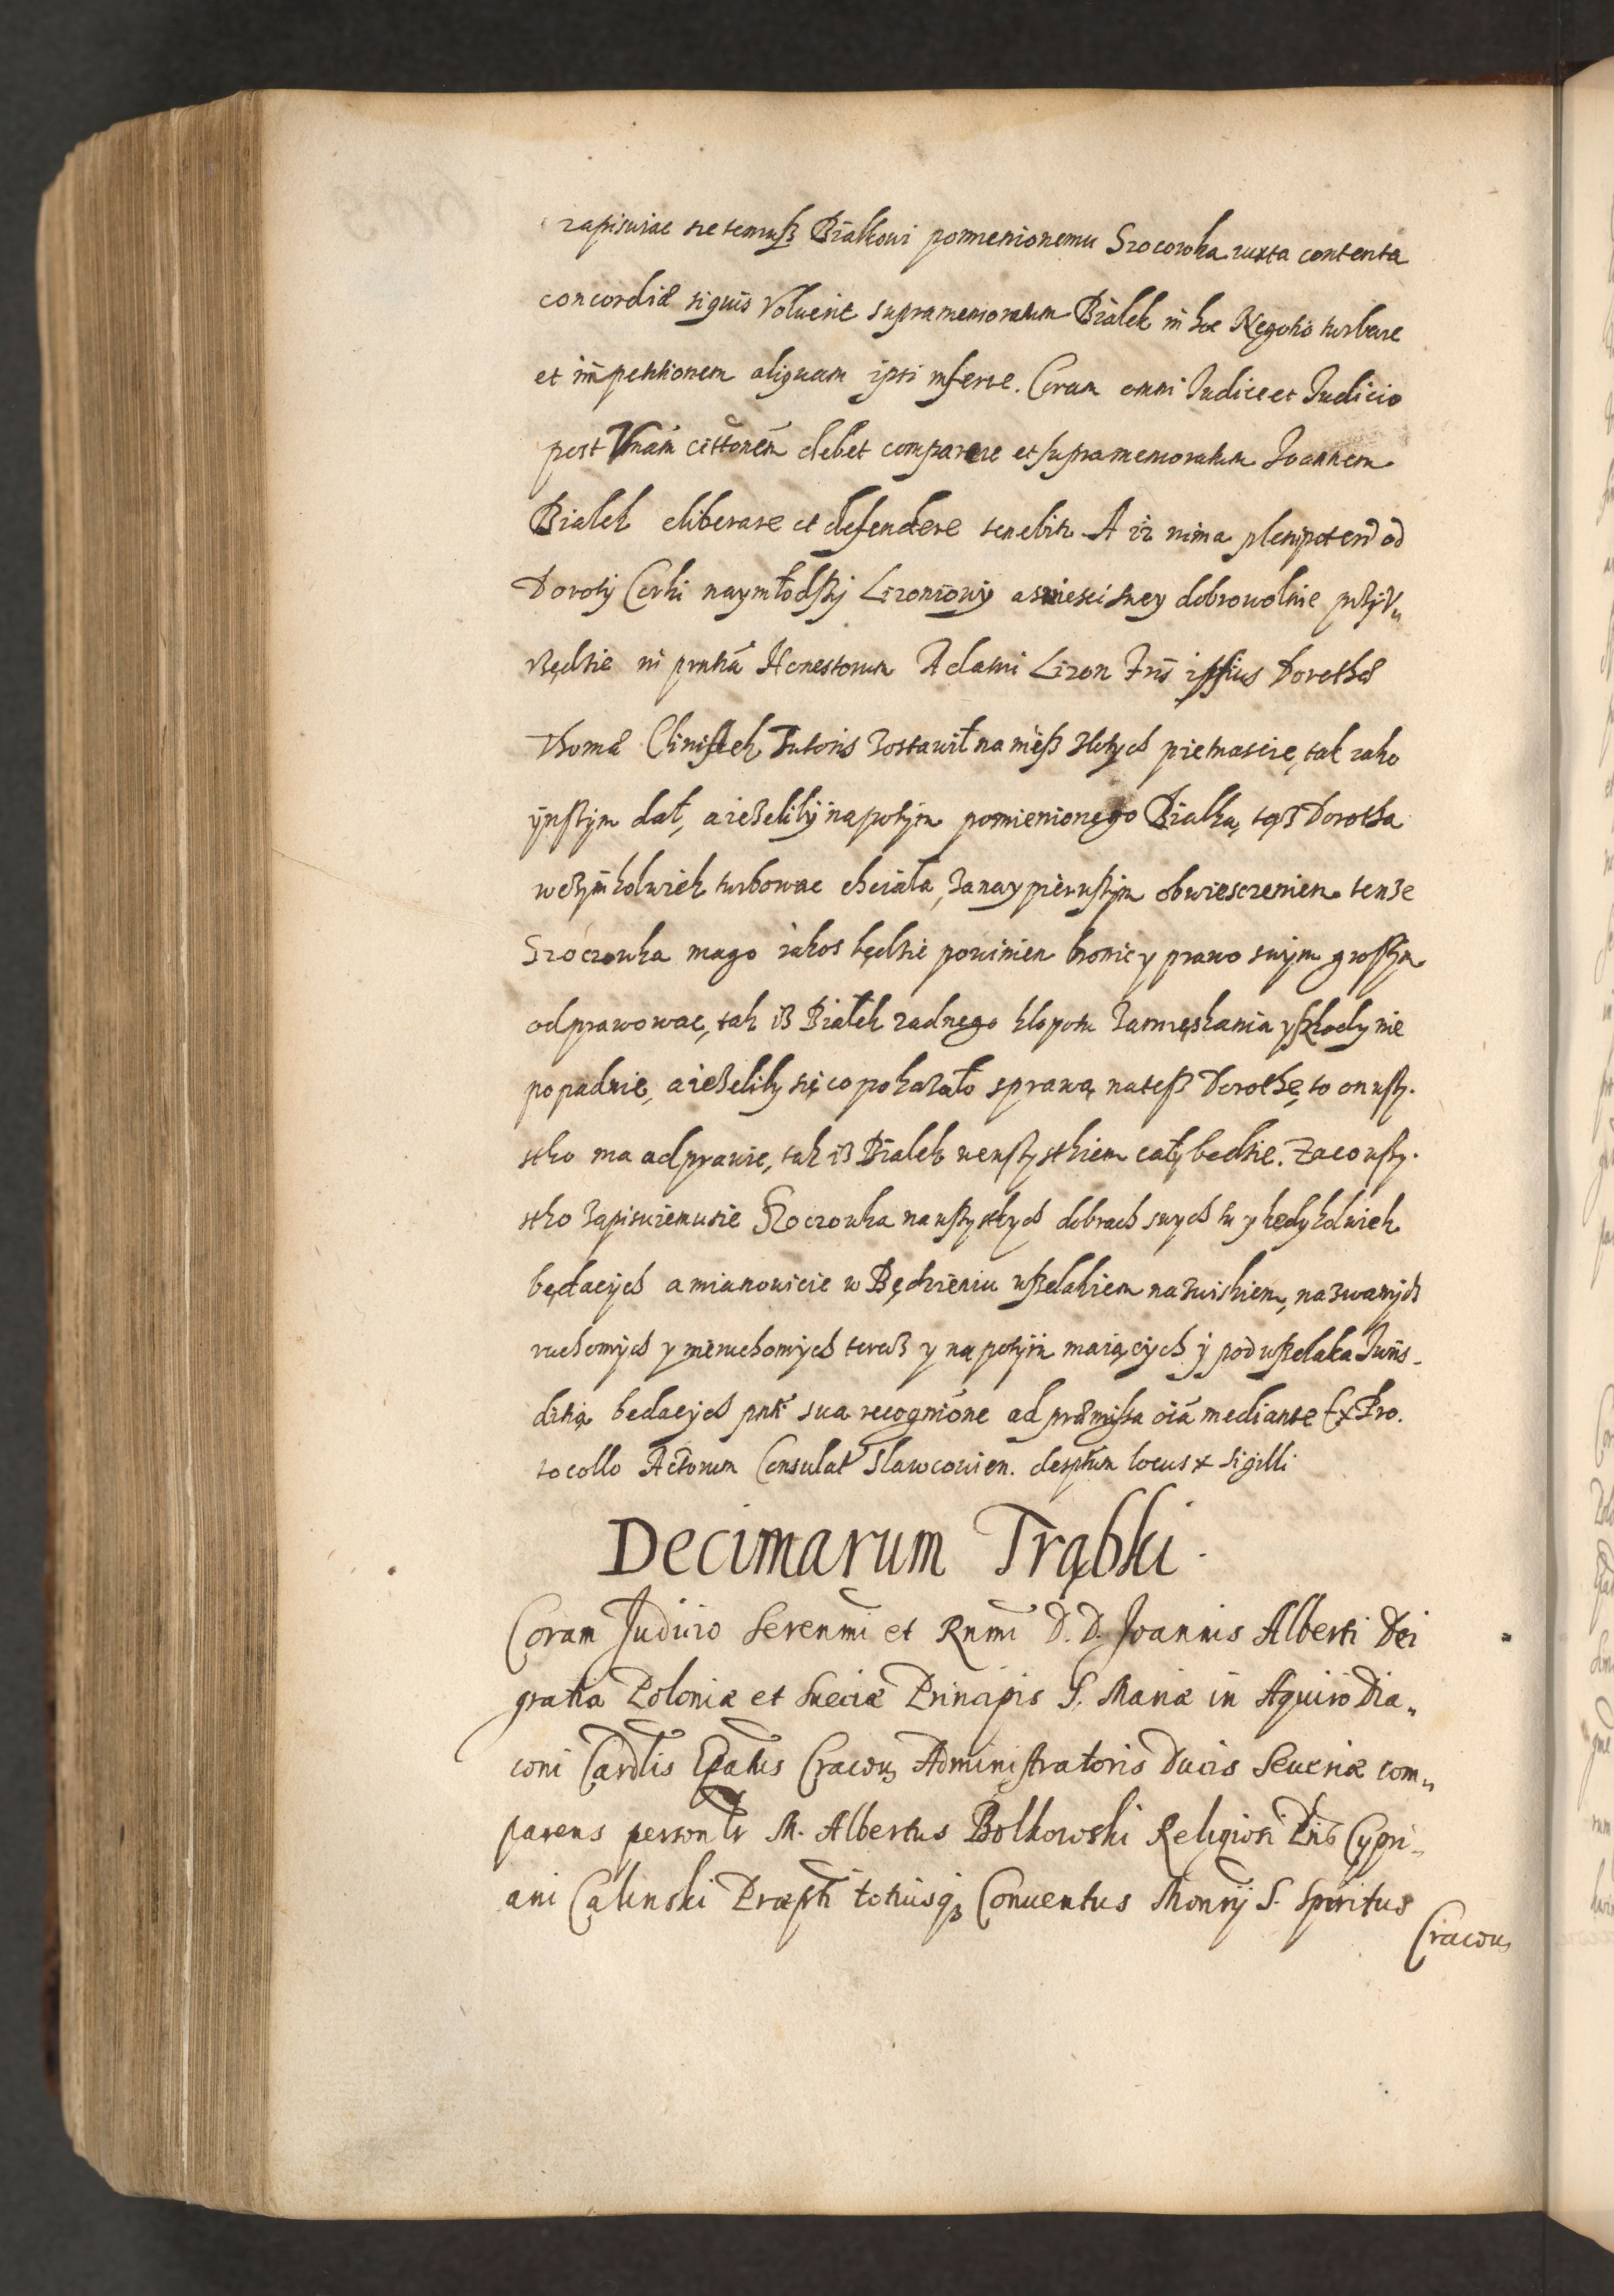 zapisuiac sie temuß Białkowi pomienionemu Szocowka iuxta contenta
concordiæ siquis Voluerit supramemoratum Białek in hoc Negotio turbare
et impetitionem aliquam ipsi inferre. Coram omni Judice et Judicio
post Vnam cittonem debet comparere et supramemoratum Joannem
Białek eliberare et defendere tenebitr. A iz nima plenipotend od
Doroty Corki naymłodszy Lizoniowy asmiesci swey dobrowolnie przy V„
rzędzie in pntia Honestorum Adami Lizon Fris ipsius Dorothæ
Thomæ Clinistek Tutoris zostawił na nieß złotych pietnascie, tak iako
ynszym dał, a ieżeliby napotym pomienionego Białka, taß Dorotha
wczymkolwiek turbowac chciała, za naypierwszym obwiesczeniem tenże
Szoczowka mago iakos będzie powinien bronic y prawo swym groszym
odprawowac, tak iß Białek zadnego kłopotu zamięskania y szkody nie
popadnie, a ieżeliby się co pokazało sprawą nateß Dorothę, to on wszy.
stko ma odprawic, tak iß Białek wewszystkiem cały bedzie. Za co wszy.
stko zapisuiemusie Szoczowka na wszystkych dobrach swych tu y kedykolwiek
będacych a mianowicie w Będzieniu wszelakiem nazwiskiem, nazwanych
ruchomych y nieruchomych teraß y na potym maiących y pod wszelaka Juris-
ditią bedacych pnti sua recognione ad præmissa oia mediante Ex Pro.
tocollo Actorum Consulat Slawcovien. desptum locus x sigilli
Decimarum Trąbki.
Coram Judicio Serenmi et Rnmi D. D. Joannis Alberti Dei
gratia Poloniæ et Sueciæ Principis S. Mariæ in Aquiro Dia„
coni Cardlis Epatus Cracou Administratoris Ducis Seueriæ com„
parens personlr M. Albertus Bolkowski Religiosi Pris Cypri„
ani Calinski Præpti totiusq3 Conuentus Monrij S. Spiritus
Cracou